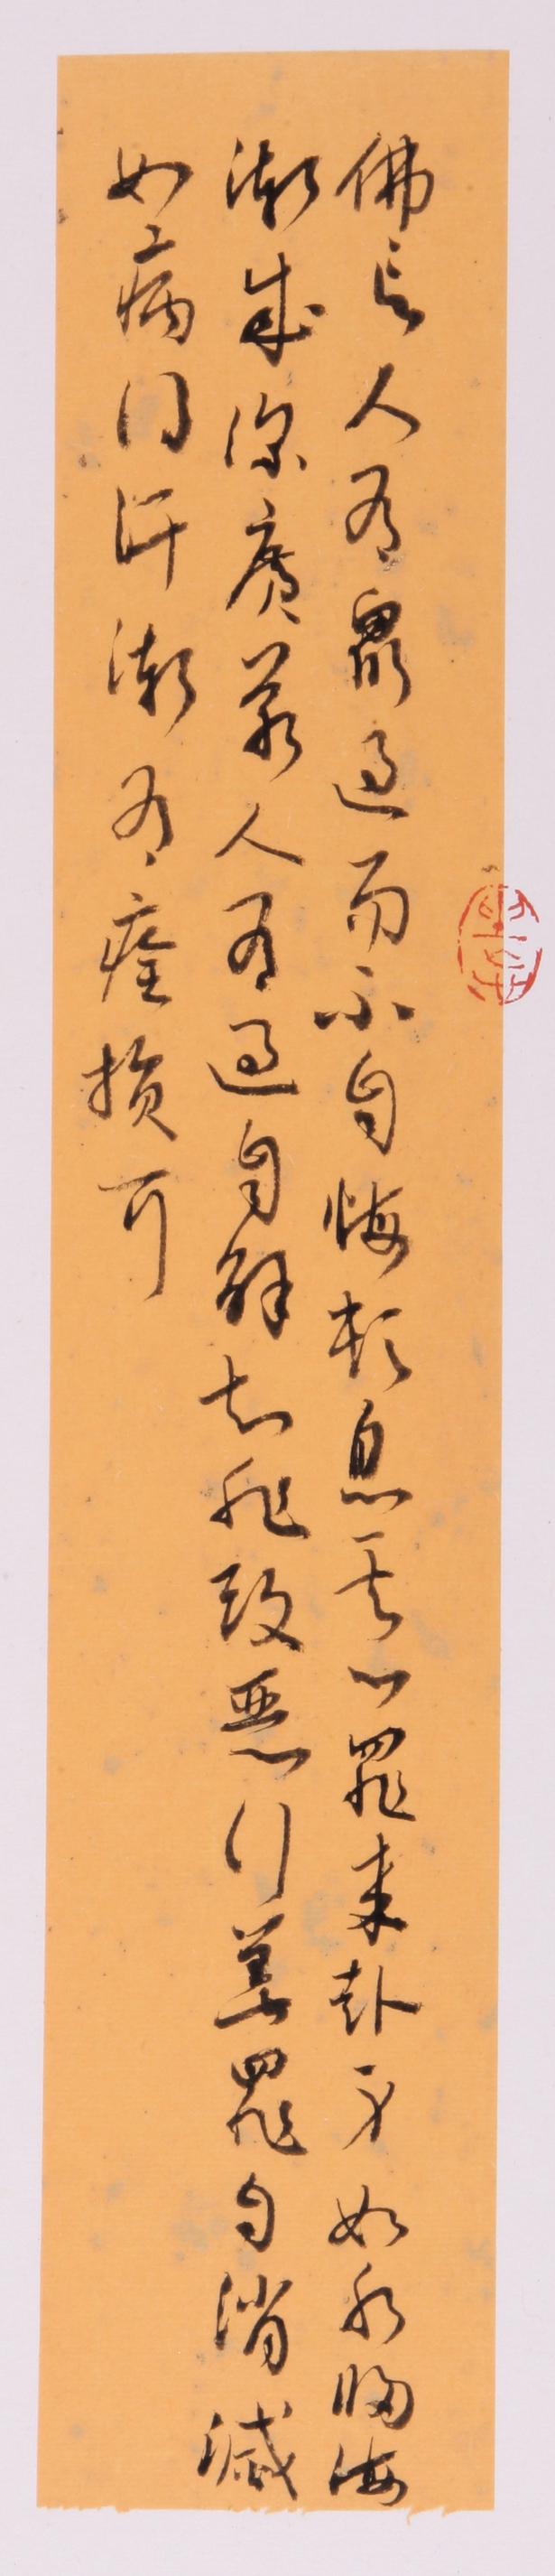 佛言人有众過而不自悔頓息其心罪来赴身如水歸海
漸成深廣若人有過自解知非改惡行善罪自消滅
如病得汗漸有痊損耳